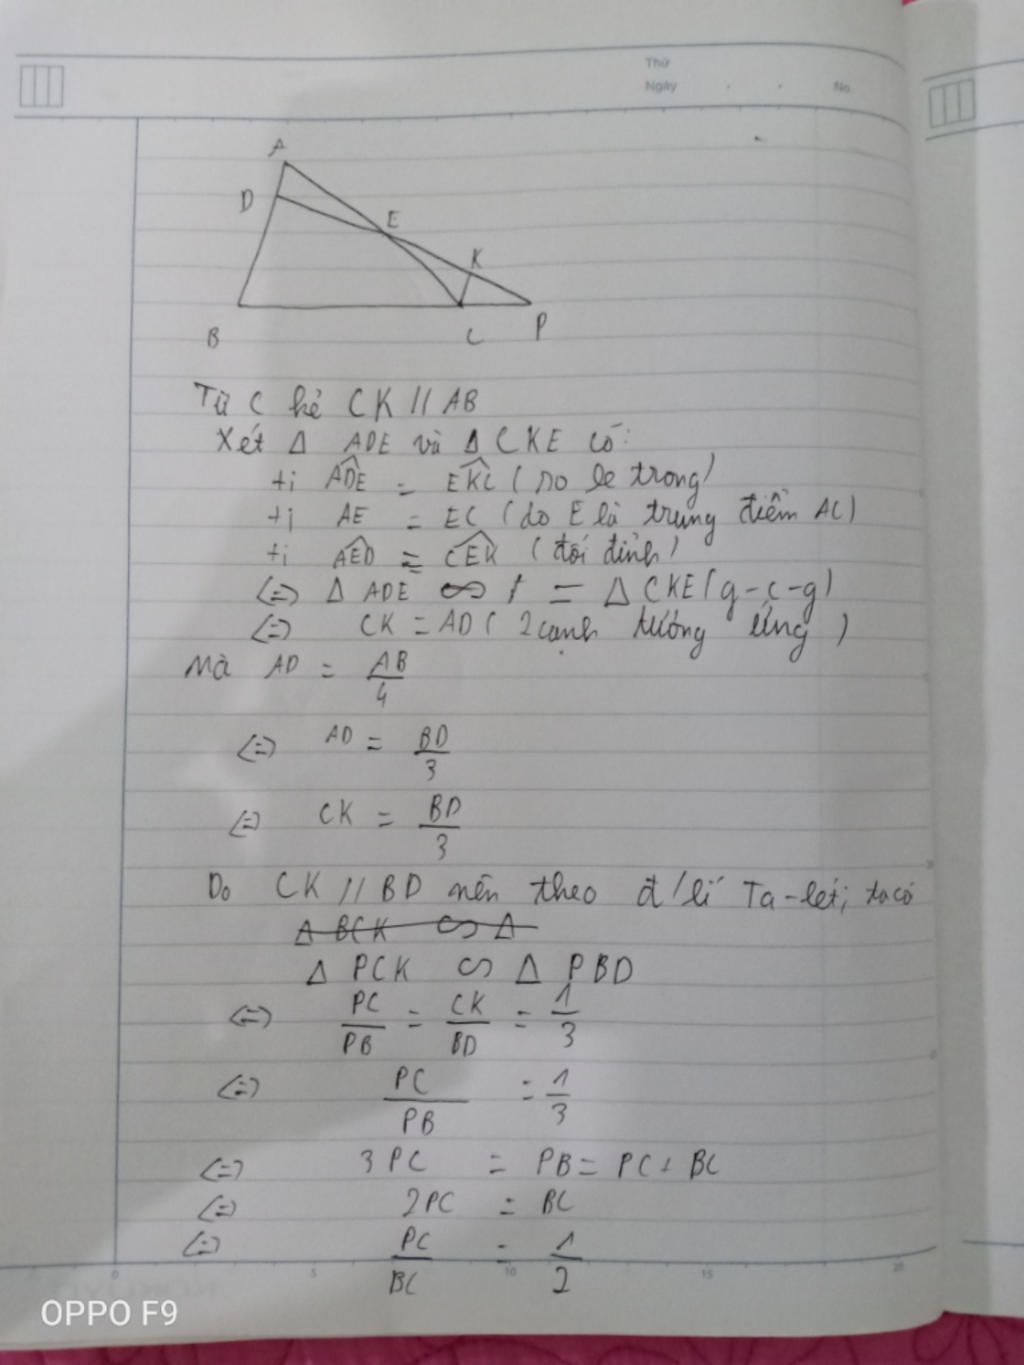 Thứ
Ngày . . No.
A
D
E
K
B
C
P
Từ C kẻ CK // AB
Xét Δ ADE và Δ CKE có:
+) ADE = EKC (so le trong)
+) AE = EC (do E là trung điểm AC)
+) AED = CEK (đối đỉnh)
<=> Δ ADE = Δ CKE (g-c-g)
<=> CK = AD (2 cạnh tương ứng)
Mà AD = AB/4
<=> AD = BD/3
<=> CK = BD/3
Do CK // BD nên theo đ/lí Ta-lét; ta có
Δ BCK ∽ Δ
Δ PCK ∽ Δ PBD
<=> PC/PB = CK/BD = 1/3
<=> PC/PB = 1/3
<=> 3PC = PB = PC + BC
<=> 2PC = BC
<=> PC/BC = 1/2
0 5 10 15 20
OPPO F9